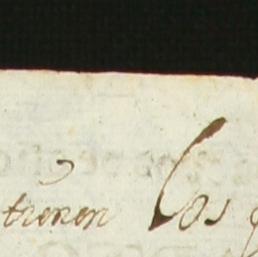 tienen los